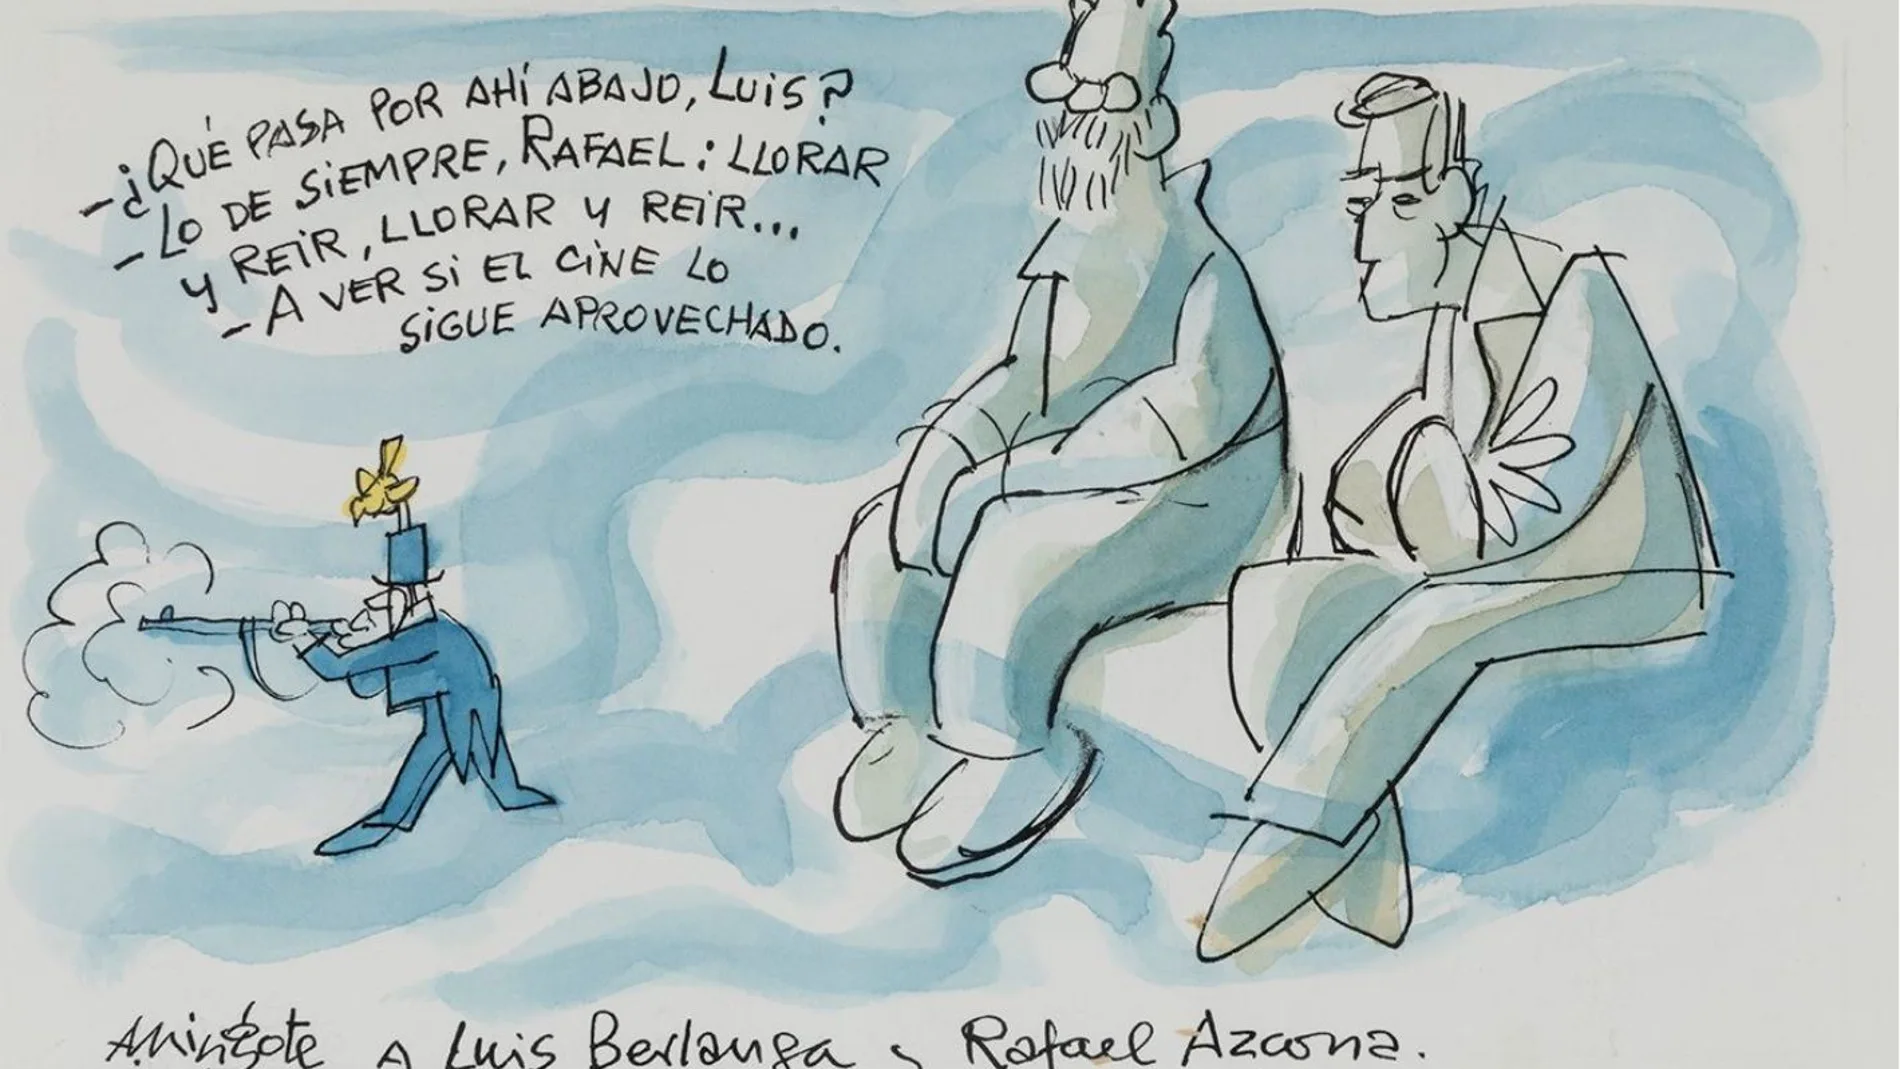 -¿QUÉ PASA POR AHÍ ABAJO, LUIS?
-LO DE SIEMPRE, RAFAEL: LLORAR
Y REIR, LLORAR Y REIR...
-A VER SI EL CINE LO
SIGUE APROVECHADO.
Mingote A Luis Berlanga y Rafael Azcona.